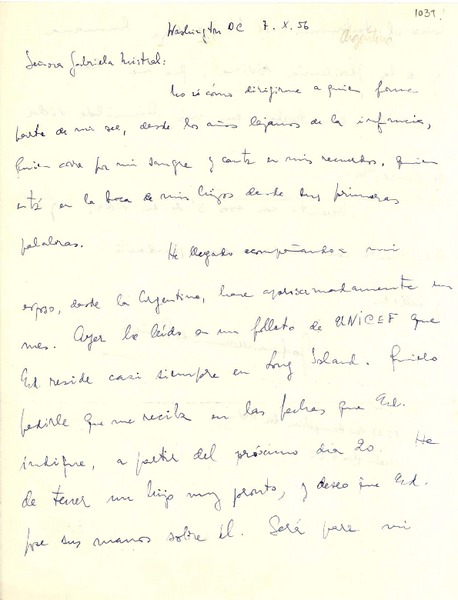 1039.
Washington DC 7. X. 56
Argentina
Señora Gabriela Mistral:
No sé cómo dirigirme a quien forma
parte de mi ser, desde los años lejanos de la infancia,
quien corre por mi sangre y canta en mis recuerdos, quien
está en la boca de mis hijos desde sus primeras
palabras.
He llegado acompañando a mi
esposo, desde la Argentina, hace aproximadamente un
mes. Ayer he leído en un folleto de UNICEF que
Ud. reside casi siempre en Long Island. Quiero
pedirle que me reciba en las fechas que Ud.
indique, a partir del próximo día 20. He
de tener un hijo muy pronto, y deseo que Ud.
pose sus manos sobre él. Será para mi